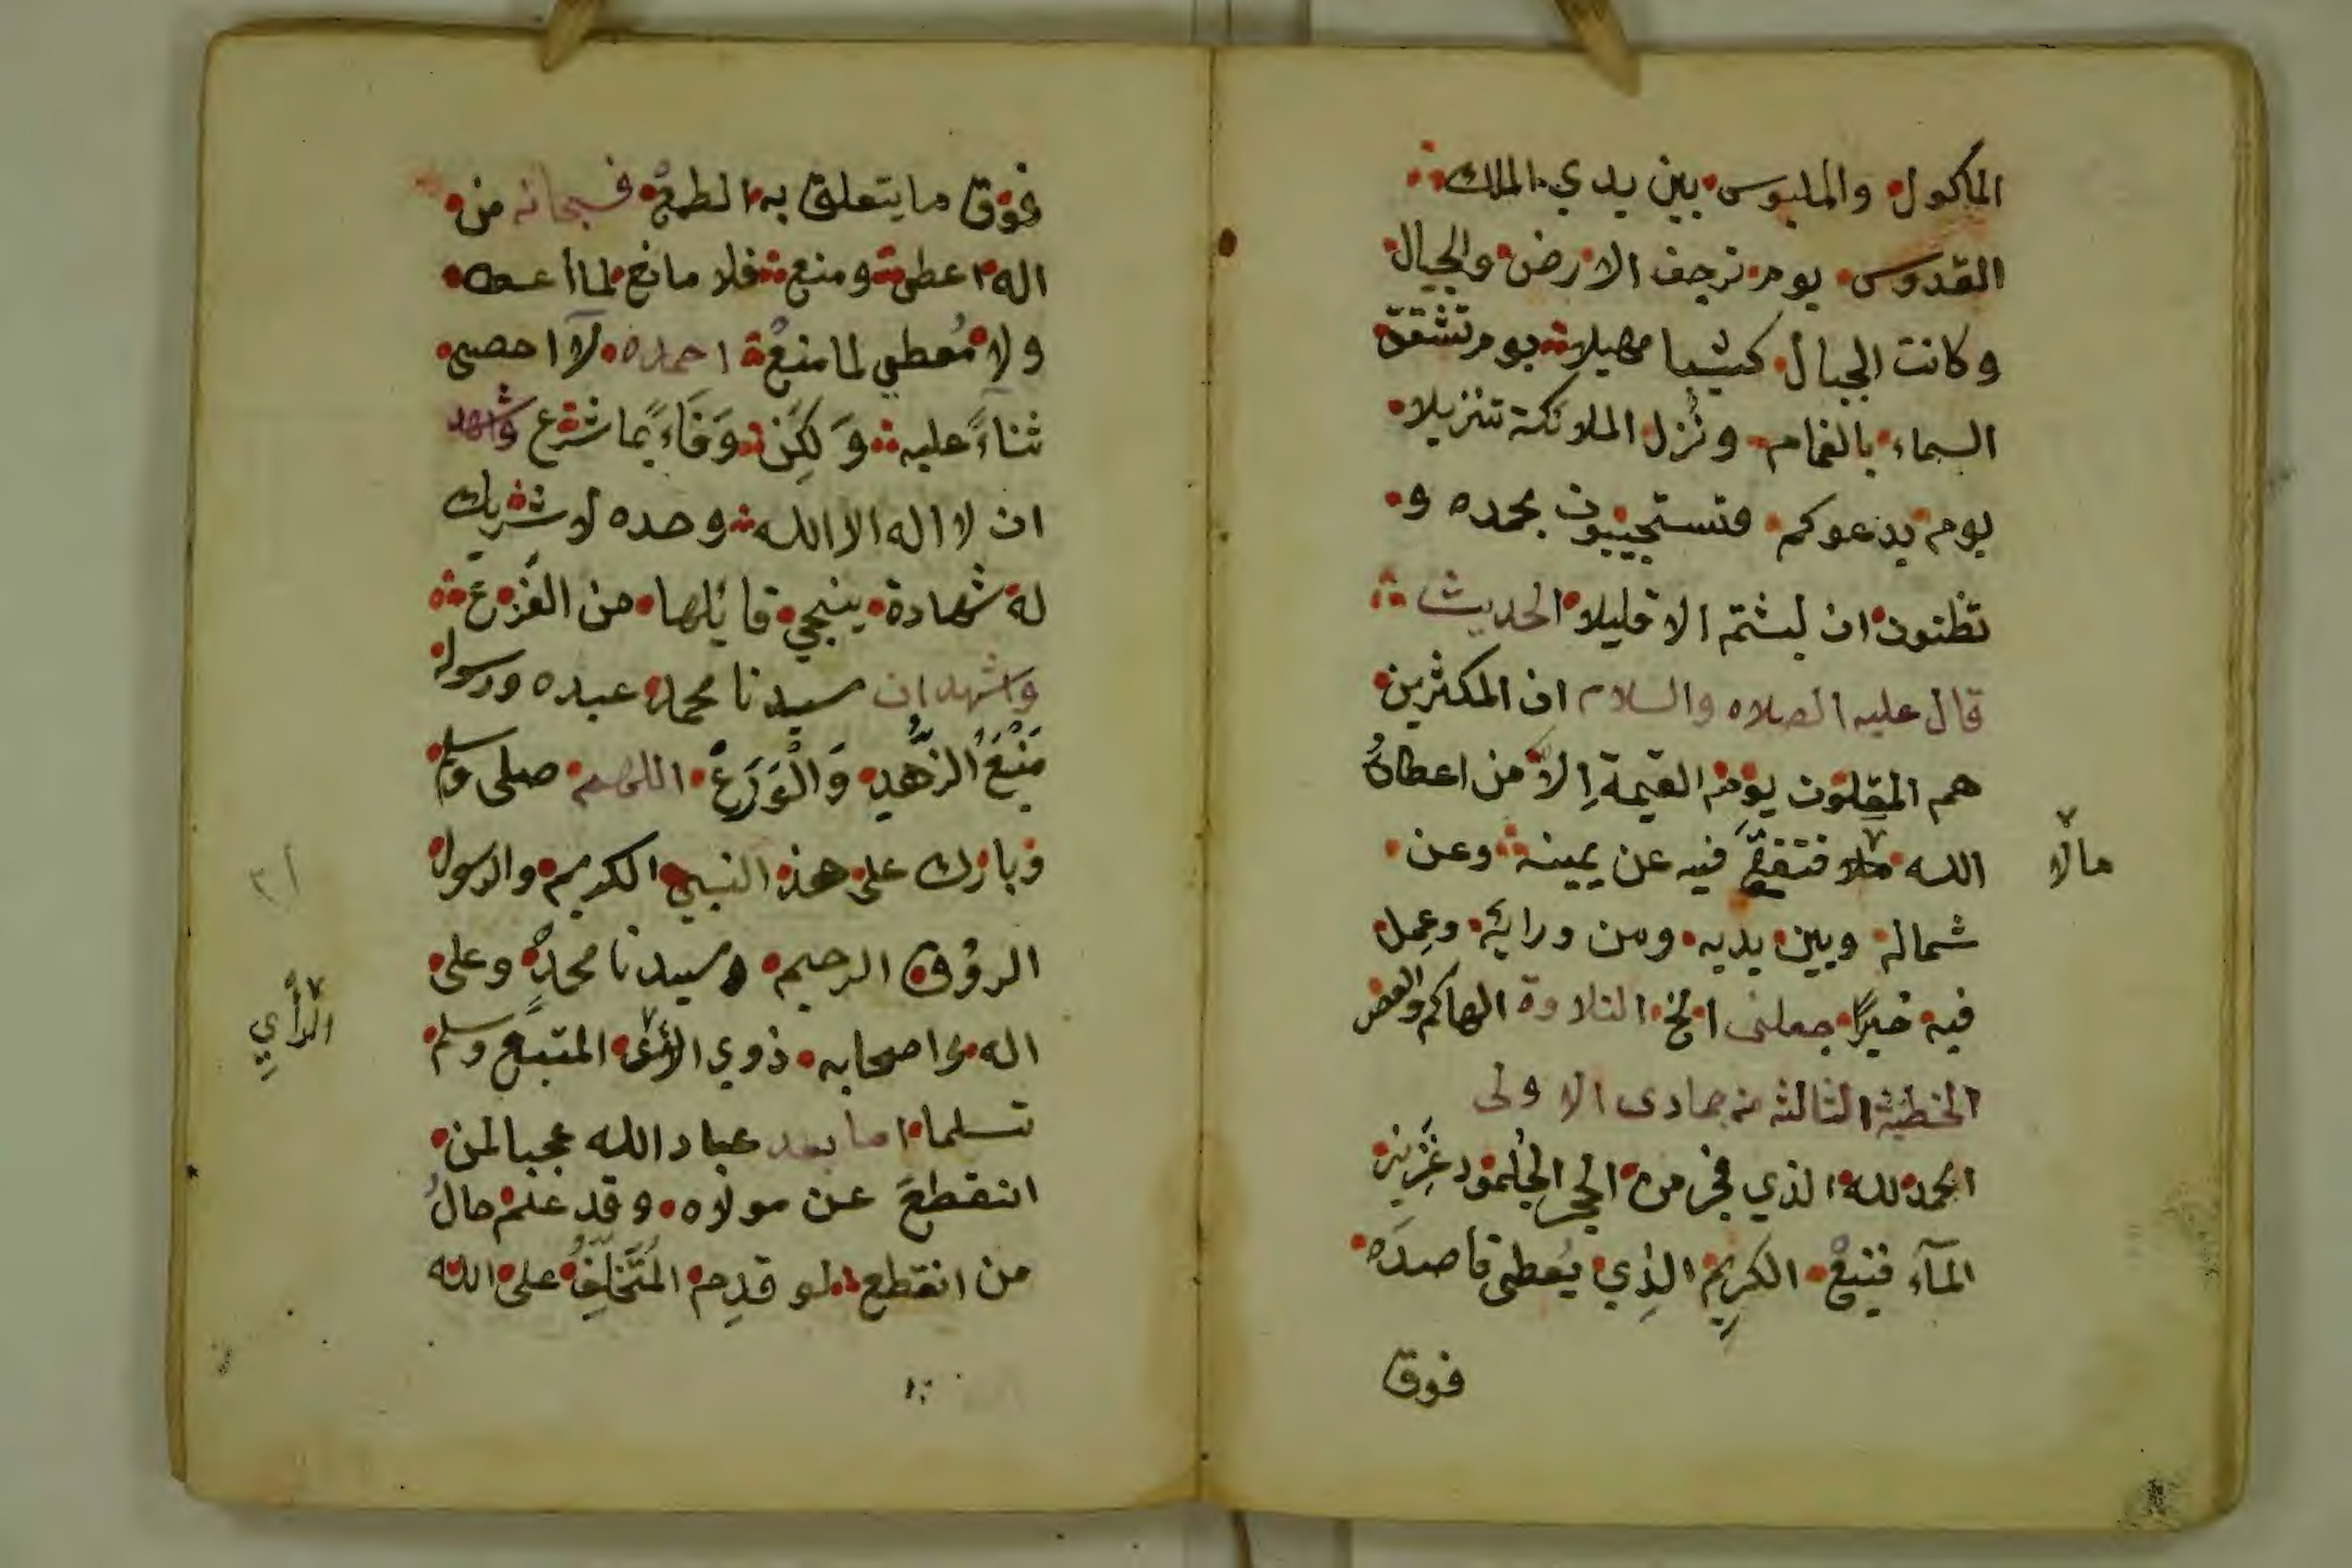 الماكول والملبوس بين يدي الملك
القدوس يوم ترجف الارض والجبال
وكانت الجبال كثيبا مهيلا يوم تشقق
السماء بالغمام ونزل الملائكة تنزيلا
يوم يدعوكم فتستجيبون بحمده و
تظنون ان لبثتم الا قليلا الحديث
قال عليه الصلاه والسلام ان المكثرين
هم المقلون يوم القيمة إلا من اعطاهُ
الله فتفقح فيه عن يمينه وعن
مالا
شماله وبين يديه ومن ورائه وعمل
فيه خيرًا جعلنى الخ التلاوة الهاكم والعصر
الخطبة الثالثه من جمادى الاولى
الحمد لله الذي فجر من الحجر الجلمود غزير
المآء فنبع الكريم الذي يُعطى قاصدَه
فوق
فوق ما يتعلق به الطمع فسبحانه من
اله اعطى ومنع فلا مانع لما أعطـه
ولا مُعطي لما منعْ احمده لآ احصى
ثناءً عليه وَلكِن وَفَاءً بما شرع واشهد
ان لا اله الا الله وحده لا شريك
له شهادة ينجي قائلها من الفَزع
واشهد ان سيدنا محمد عبده ورسوله
مَنْبَعُ الزُّهد وَالْوَرَعْ اللهم صلى وسلم
وبارك على هذ النبي الكريم والرسول
الروف الرحيم سيدنا محمدٍ وعلى
اله واصحابه ذوي المتبع وسلم
الرأي
تسلما اما بعد عباد الله عجبا لمن
انقطعَ عن مولاه وقد علم حالُ
من انقطع لو قدِم المُتَخَلِّفُ على الله